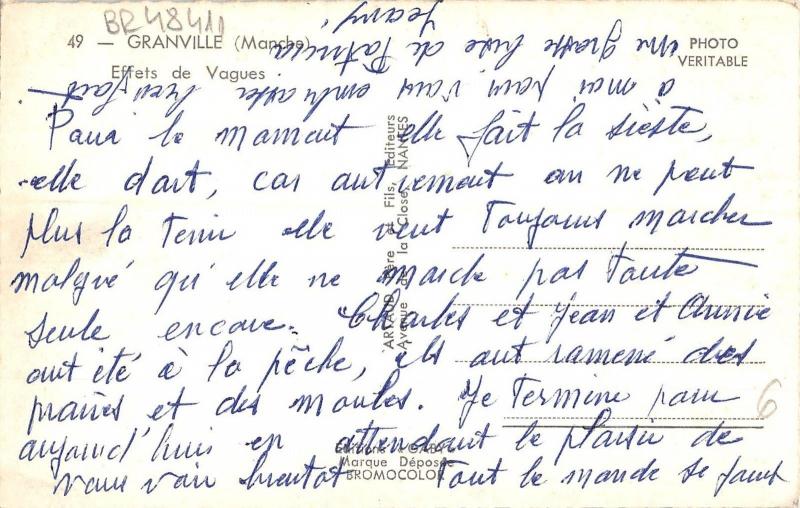 BR48411
49 — GRANVILLE (Manche)
Effets de Vagues
PHOTO
VERITABLE
Pour le moment elle fait la sieste,
elle dort, car autrement on ne peut
plus la tenir elle veut toujours marcher
malgré qu'elle ne marche pas toute
seule encore. Charles et Jean et Annie
ont été à la pêche, ils ont ramené des
praires et des moules. Je termine pour
aujourd'hui en attendant le plaisir de
vous voir bientôt Tout le monde se joint
à moi pour vous embrasser bien fort
une grosse bise de Patricia
Jeany
ARTAUD Père et Fils, Editeurs
Avenue de la Close, NANTES
Editions "GABY"
Marque Déposée
BROMOCOLOR
6